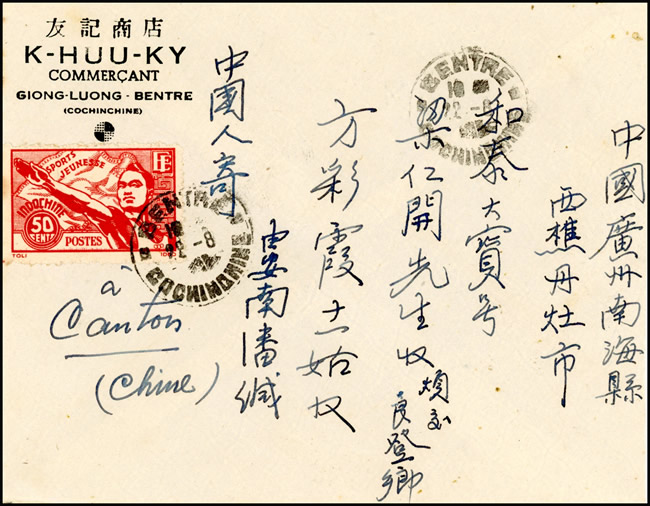 友記商店
K-HUU-KY
COMMERÇANT
GIONG-LUONG - BENTRE
(COCHINCHINE)
SPORTS
JEUNESSE
INDOCHINE
50
CENTS
POSTES
TOLI
BENTRE
COCHINCHINE
BENTRE
COCHINCHINE
à
Canton
(Chine)
中國廣州南海縣
西樵丹灶市
和泰大寶号
梁仁開先生收
煩交
良登鄉
方彩霞
姑收
中國人寄
由安南潘缄